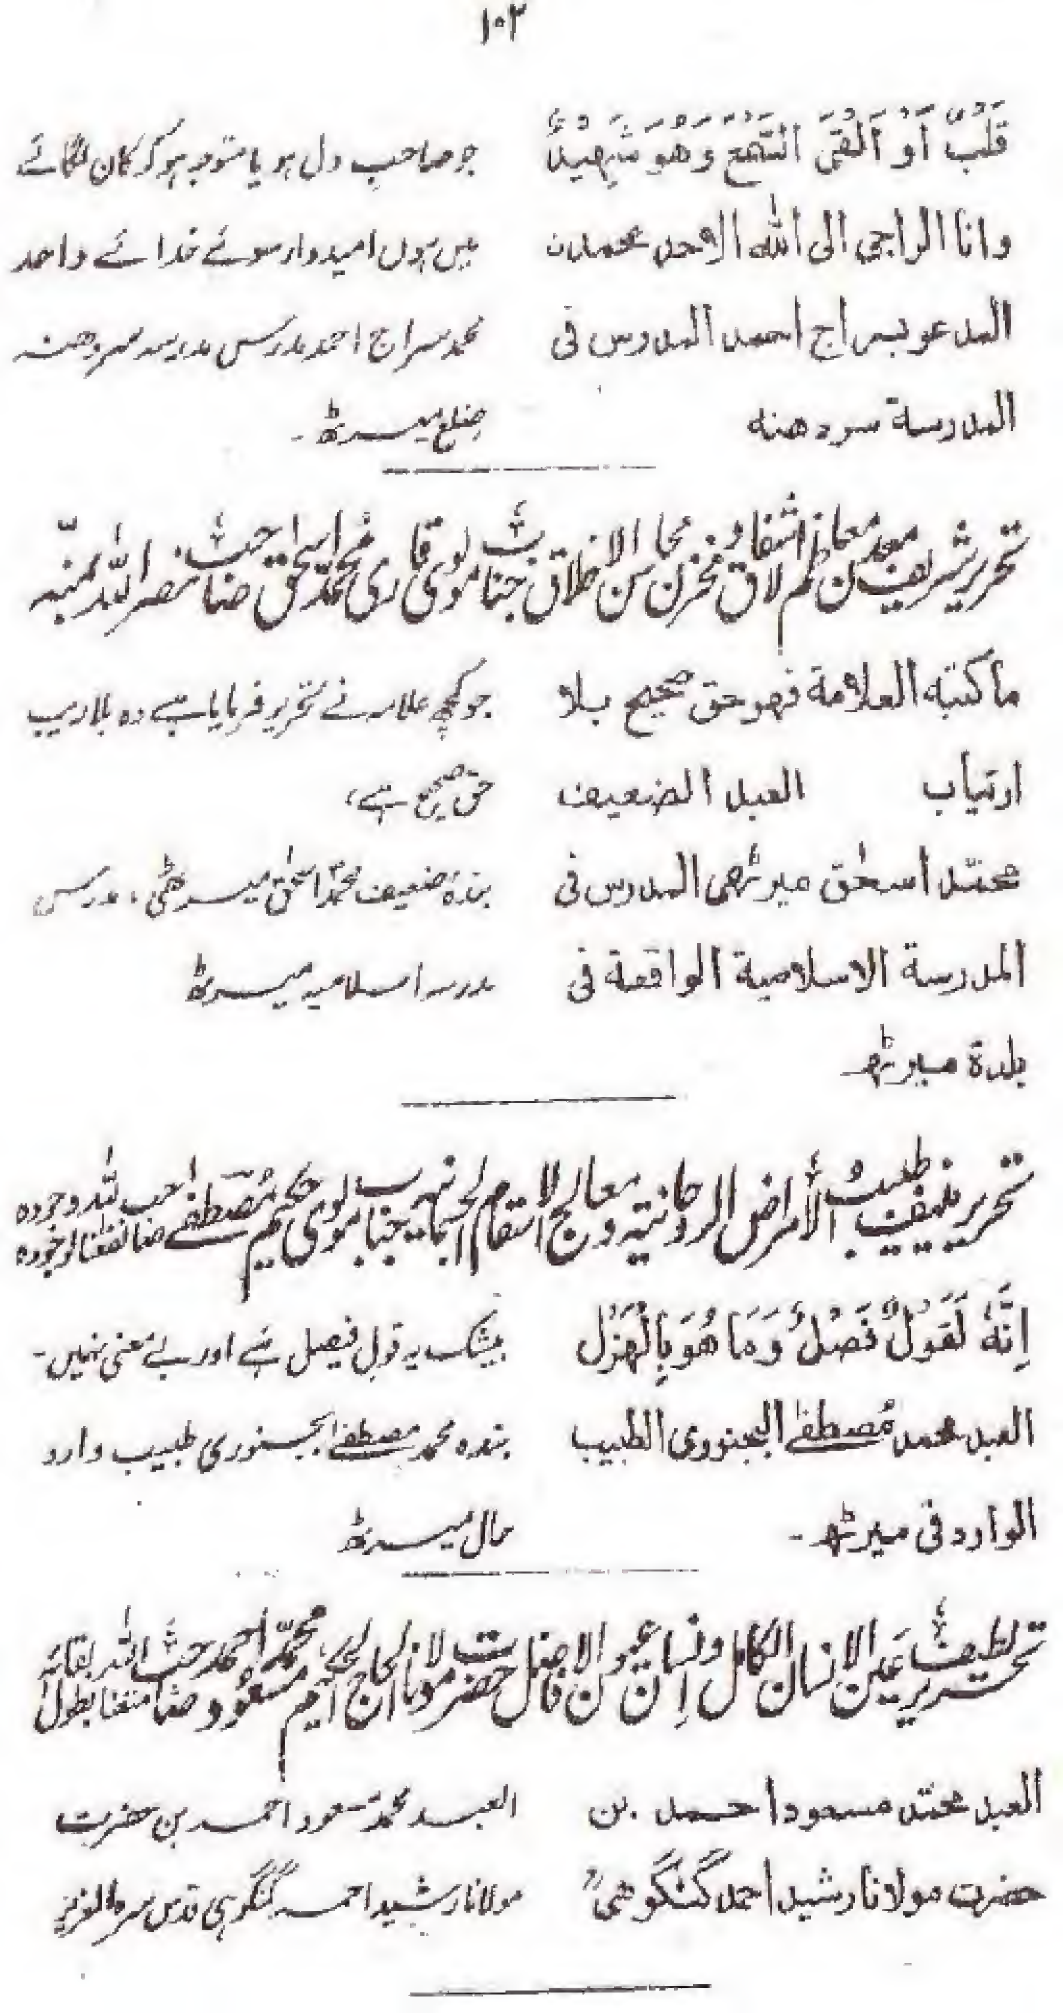 ۱۰۲
قَلْبٌ اَوْ اَلْقَی السَّمْعَ وَھُوَ شَہِیْدٌ جو صاحب دل ہو یا متوجہ ہو کر کان لگائے
وانا الراجی الی اللہ الاحد محمدن میں ہوں امیدوار سوئے خدائے واحد
المدعو بسراج احمد المدرس فی محمد سراج احمد مدرس مدرسہ سردھنہ
المدرسة سردھنہ ضلع میرٹھ۔
تحریر شریف معدن معاظم اشفاق و مخزن محاسن الاخلاق جناب مولوی قاری محمد اسحٰق صاحب نصر اللہ بمنہ
ماکتبہ العلامة فھو حق صحیح بلا جو کچھ علامہ نے تحریر فرمایا ہے وہ بلا ریب
ارتیاب العبد الضعیف حق صحیح ہے،
محمد اسحٰق میرٹھی المدرس فی بندۂ ضعیف محمد اسحٰق میرٹھی، مدرس
المدرسة الاسلامیة الواقعة فی مدرسہ اسلامیہ میرٹھ
بلدة میرٹھ
تحریر منیف طبیب الأمراض الروحانیة ومعالج الاسقام الجسمانیہ جناب مولوی حکیم مصطفےٰ صاحب
اِنَّهٗ لَقَوْلٌ فَصْلٌ وَّمَا ھُوَ بِالْھَزْلِ بیشک یہ قول فیصل ہے اور بے معنی نہیں۔
العبد محمد مُصطفےٰ البجنوری الطبیب بندہ محمد مصطفےٰ بجنوری طبیب وارد
الوارد فی میرٹھ۔ حال میرٹھ
تحریر لطیف عین الانسان الکامل وانسان عیون الافاضل حضرت مولانا الحاج الحکیم محمد مسعود احمد صاحب متعنا اللہ بطول بقائہ
العبد محمد مسعود احمد بن العبد محمد مسعود احمد بن حضرت
حضرت مولانا رشید احمد گنگوھیؒ مولانا رشید احمد گنگوہی قدس سرہ العزیز